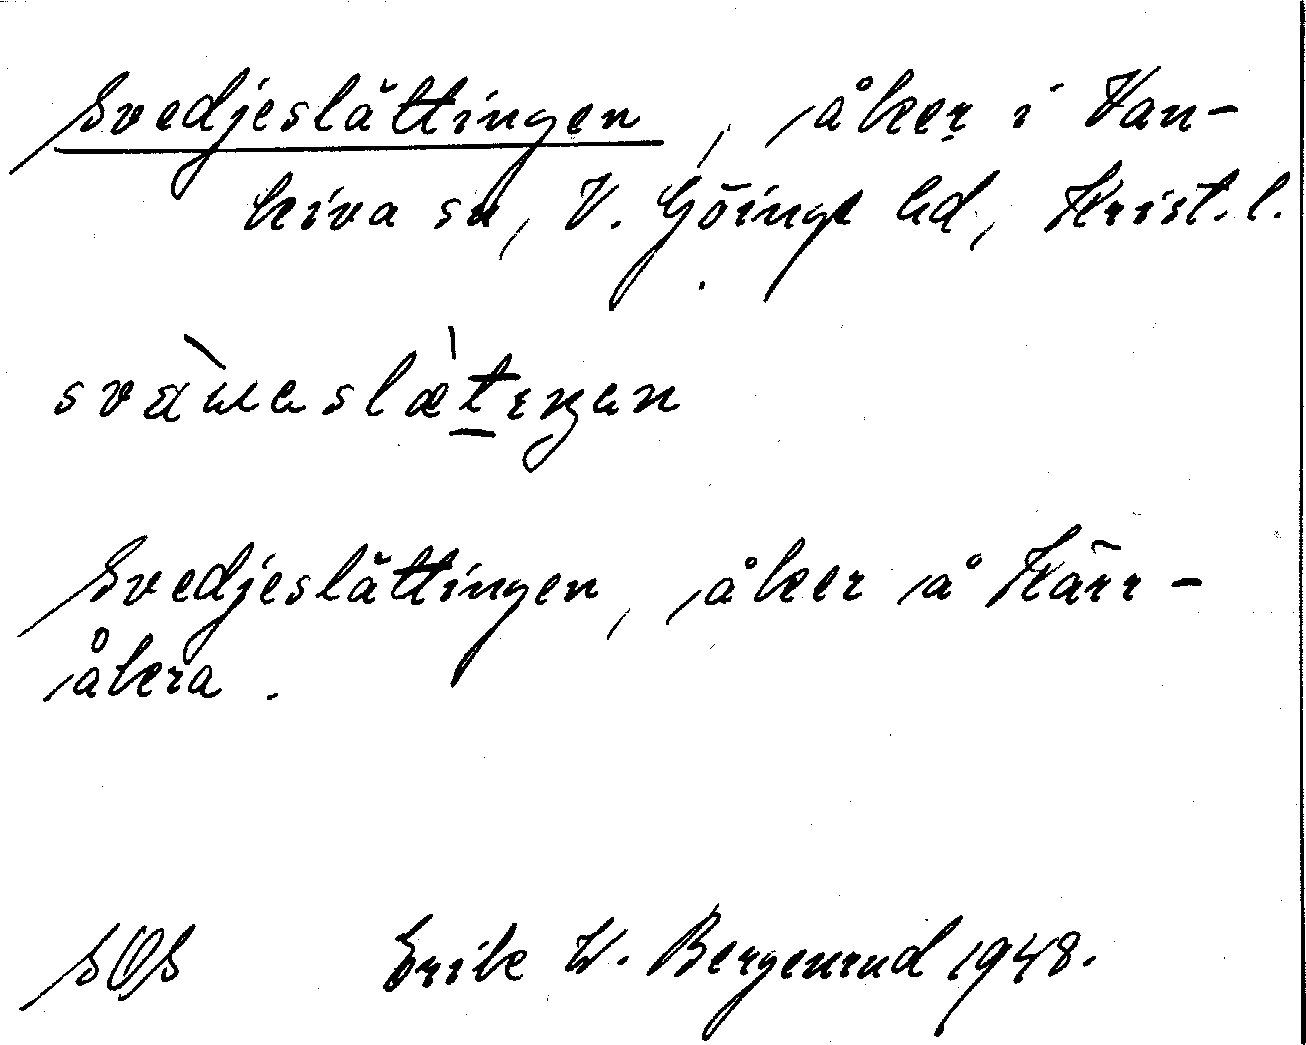 Svedjeslättingen, åker i Van-
kiva sn, V. Göinge hd, Krist. l.
svàɯaslæ̀tɪŋan
Svedjeslättingen, åker å Kärr-
åkra.
SOS Erik W. Bergenrud 1948.